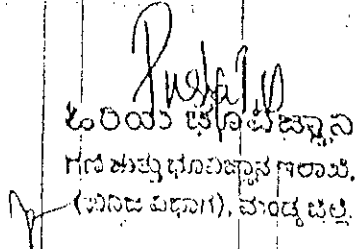 ಹಿರಿಯ ಭೂವಿಜ್ಞಾನಿ
ಗಣಿ ಮತ್ತು ಭೂವಿಜ್ಞಾನ ಇಲಾಖೆ,
(ಖನಿಜ ವಿಭಾಗ), ಮಂಡ್ಯ ಜಿಲ್ಲೆ